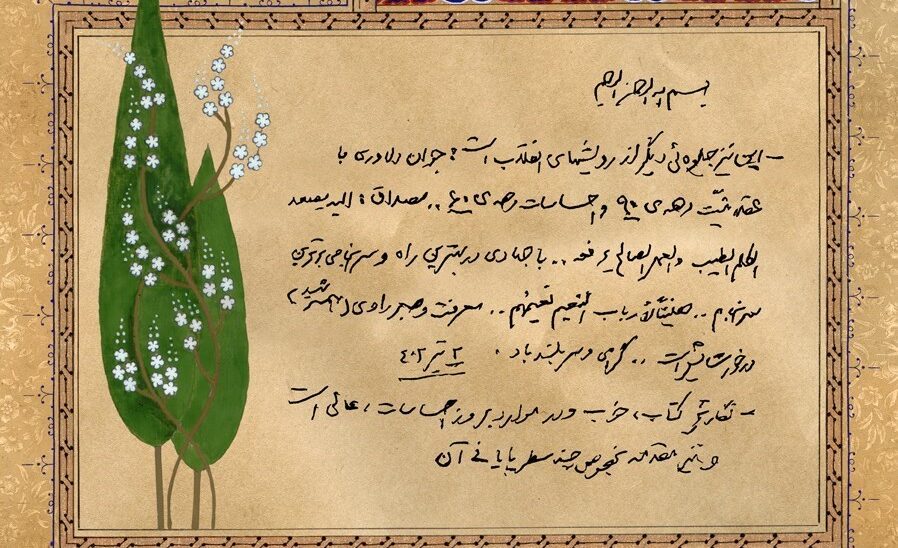 بسم الله الرحمن الرحیم
- این نیز جلوه‌ئی دیگر از رویشهای انقلاب است؛ جوان دلاوری با
عقلانیّت دهه‌ی ۹۰ و احساسات دهه‌ی ۶۰ .. مصداق: الیه یصعد
الکلم الطیب والعمل الصالح یرفعه .. با جهادی در بهترین راه و سرانجامی برترین
سرانجام .. هنیئاً لأرباب النعیم نعیمُهم .. معرفت و صبر راوی (همسر شهید)
درخور ستایش است .. گرامی و سربلند باد. ۳ تیر ۴۰۲
- نگارش کتاب، خوب و در موارد بروز احساسات، عالی است
و نیز مقدمه بخصوص چند سطر پایانی آن